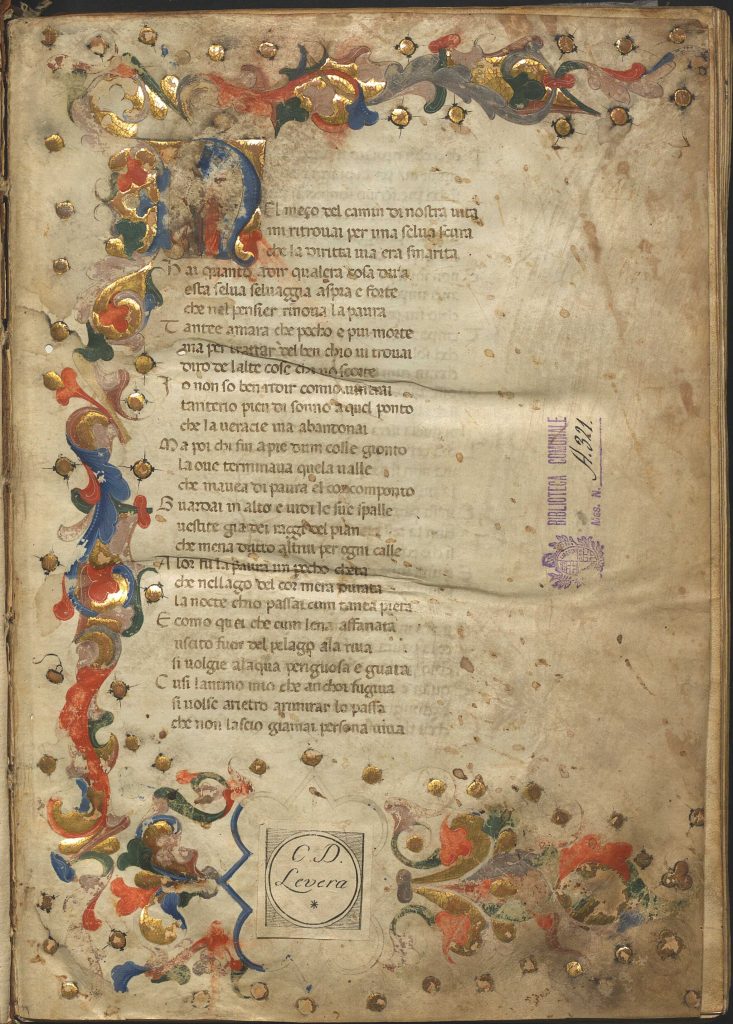 NEl meço del camin di nostra uita
mi ritrouai per una selua scura
che la diritta uia era smarita
Hai quanto adir qualera cosa dura
esta selua seluaggia aspra e forte
che nel pensier rinoua la paura
Tantee amara che pocho e piu morte
ma per trattar del ben chio ui trouai
diro de lalte cose che
Io non so ben ridir como uintrai
tantera pien di sonno a quel ponto
che la ueracie uia abandonai
Ma poi chi fui a pie dum colle gionto
la oue terminaua quela ualle
che mauea di paura el cor componto
Guardai in alto e uidi le sue spalle
uestite gia dei raggi del pian
che mena dritto altrui per ogni calle
Alor fu la paura un pocho cheta
che nel lago del cor mera durata
la nocte chio passai cum tanta pieta
E como quei che cum lena affanata
uscito fuor del pelago ala riua
si uolgie alaqua periguosa e guata
Cusi lanimo mio che anchor fugiua
si uolse arietro a rimirar lo passa
che non lascio giamai persona uiua
BIBLIOTECA COMUNALE
A. 321.
C. D.
Levera
*